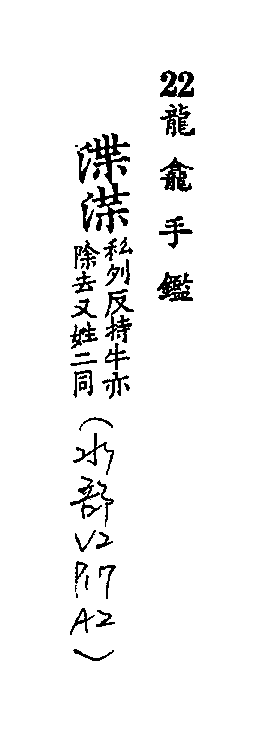 22龍龕手鑑
渫㵩私列反持牛亦
除去又姓二同
(水部V2P17A2)